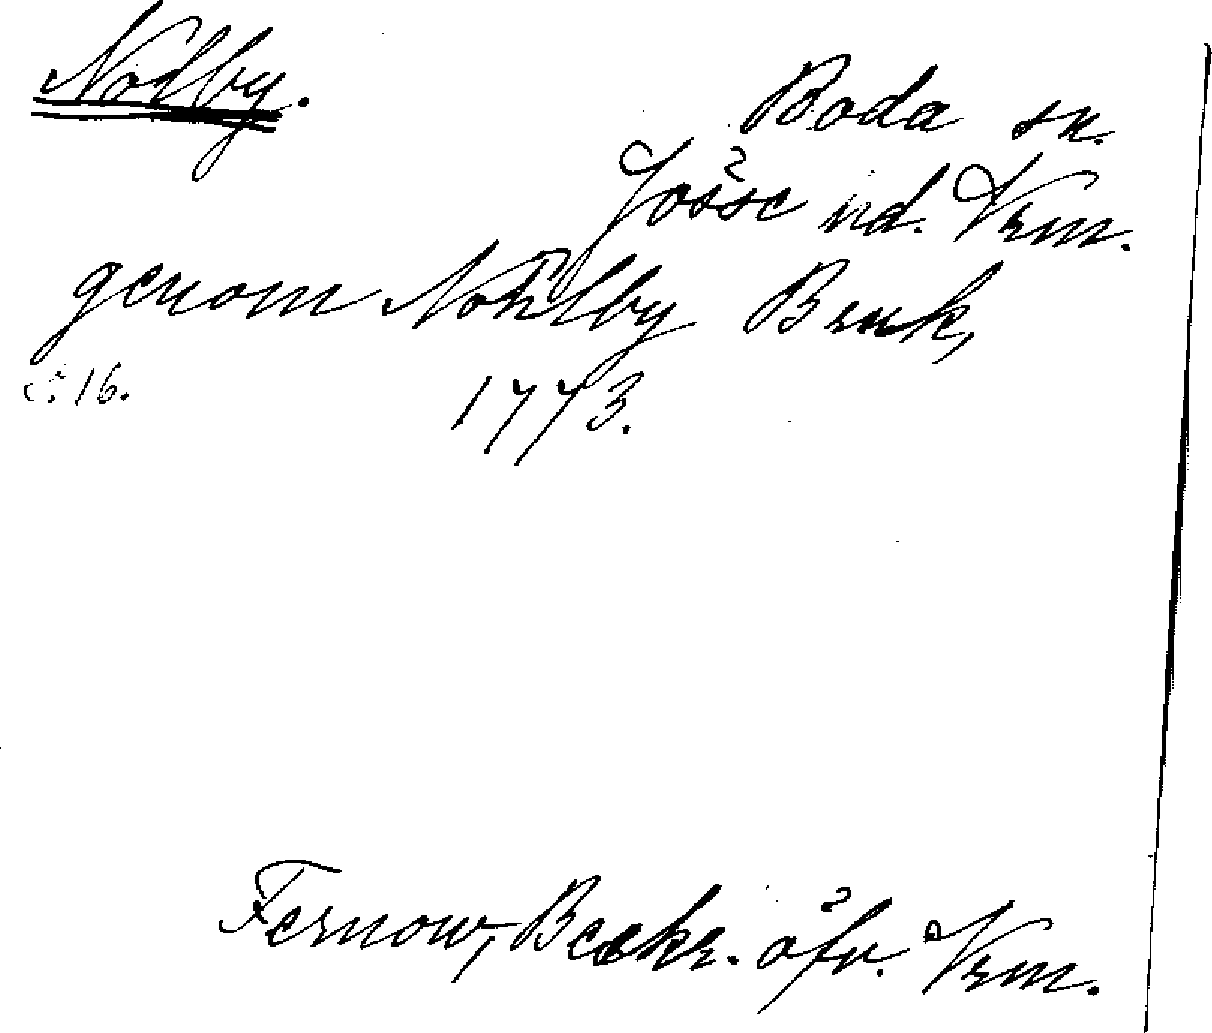 Nolby.
Boda sn.
Jösse hd. Vrm.
genom Nohlby Bruk,
1773.
Fernow, Beskr. öfv. Vrm.